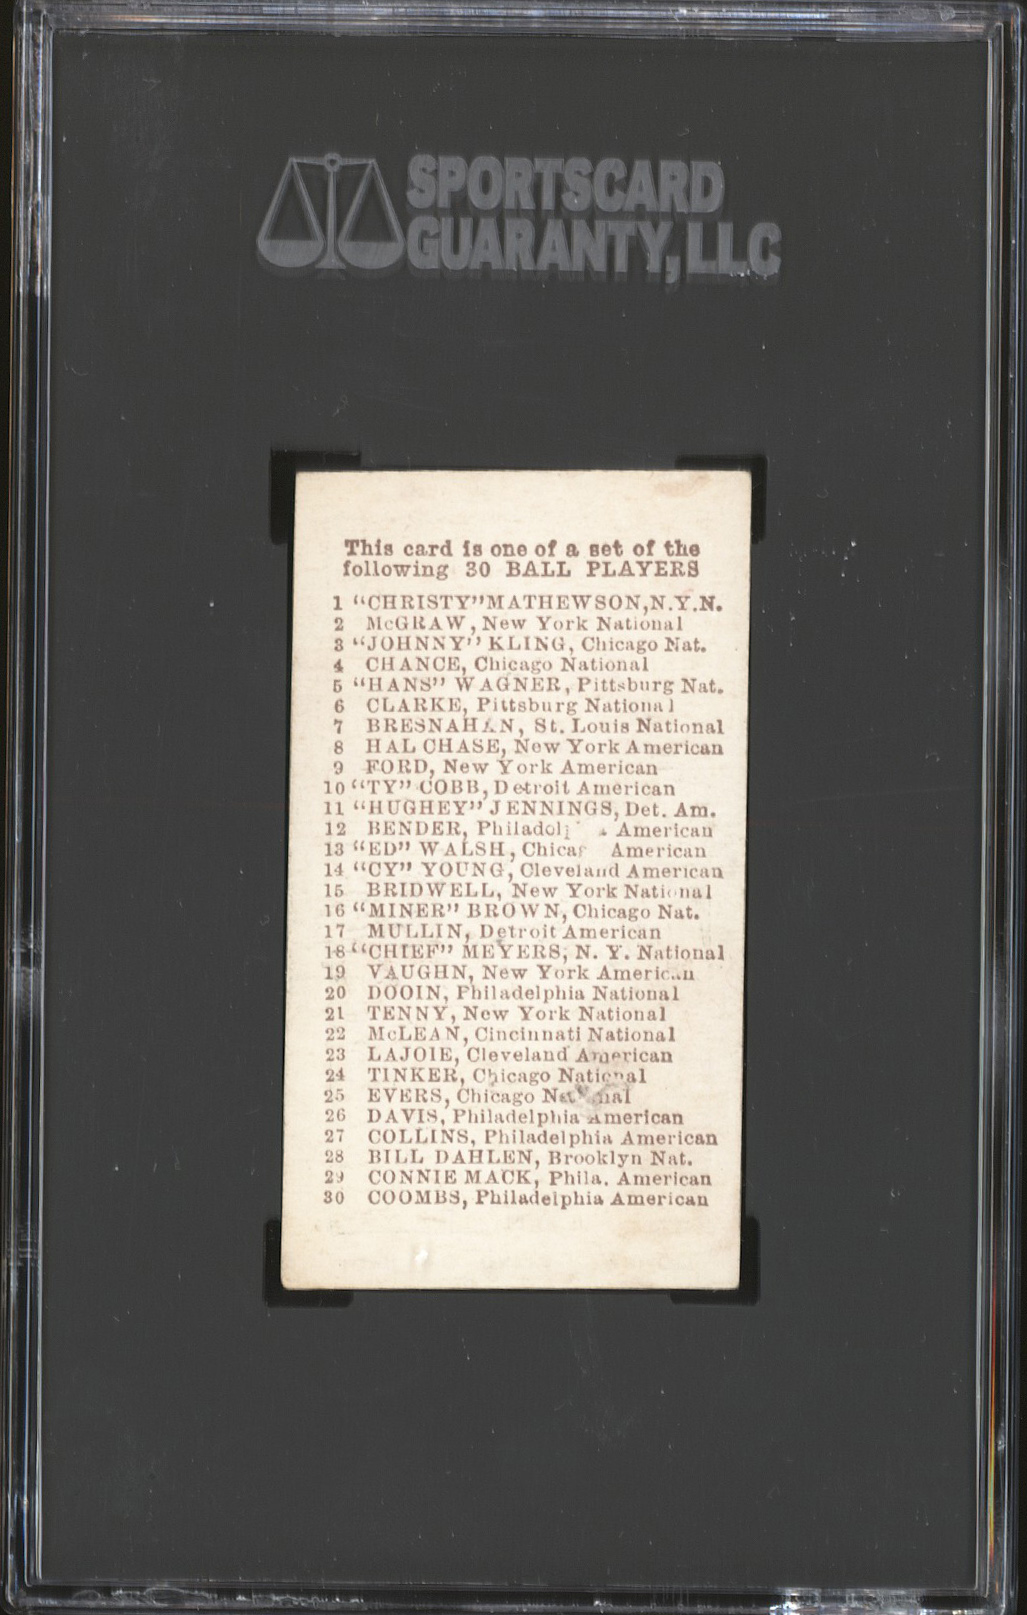 SPORTSCARD
GUARANTY, LLC
This card is one of a set of the
following 30 BALL PLAYERS
1 "CHRISTY" MATHEWSON, N.Y.N.
2 McGRAW, New York National
3 "JOHNNY" KLING, Chicago Nat.
4 CHANCE, Chicago National
5 "HANS" WAGNER, Pittsburg Nat.
6 CLARKE, Pittsburg National
7 BRESNAHAN, St. Louis National
8 HAL CHASE, New York American
9 FORD, New York American
10 "TY" COBB, Detroit American
11 "HUGHEY" JENNINGS, Det. Am.
12 BENDER, American
13 "ED" WALSH, American
14 "CY" YOUNG, Cleveland American
15 BRIDWELL, New York National
16 "MINER" BROWN, Chicago Nat.
17 MULLIN, Detroit American
18 "CHIEF" MEYERS, N. Y. National
19 VAUGHN, New York American
20 DOOIN, Philadelphia National
21 TENNY, New York National
22 McLEAN, Cincinnati National
23 LAJOIE, Cleveland American
24 TINKER, Chicago National
25 EVERS, Chicago National
26 DAVIS, Philadelphia American
27 COLLINS, Philadelphia American
28 BILL DAHLEN, Brooklyn Nat.
29 CONNIE MACK, Phila. American
30 COOMBS, Philadelphia American